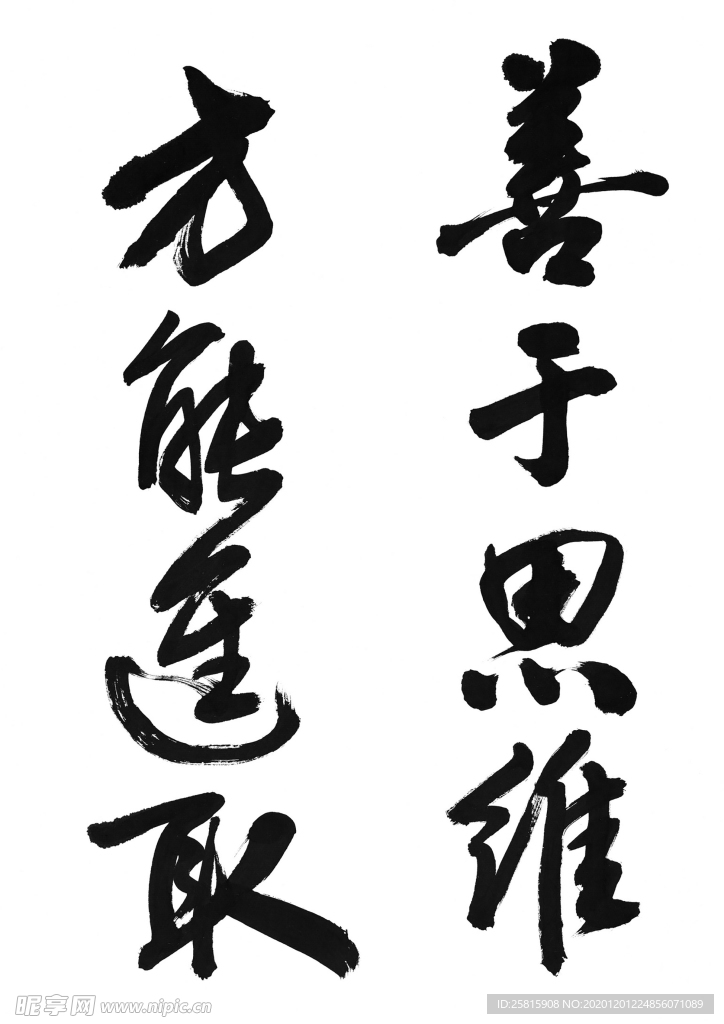 善于思维
方能進取
昵享网 www.nipic.cn
ID:25815908 NO:20201201224856071089